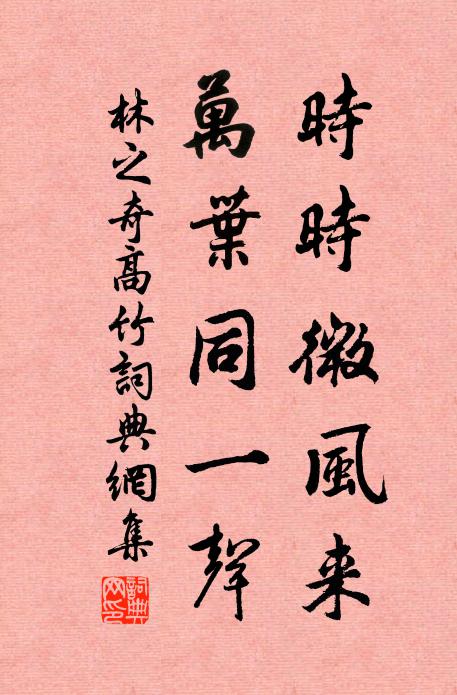 時時微風来
萬葉同一聲
林之奇高竹詞典網集
詞典網印